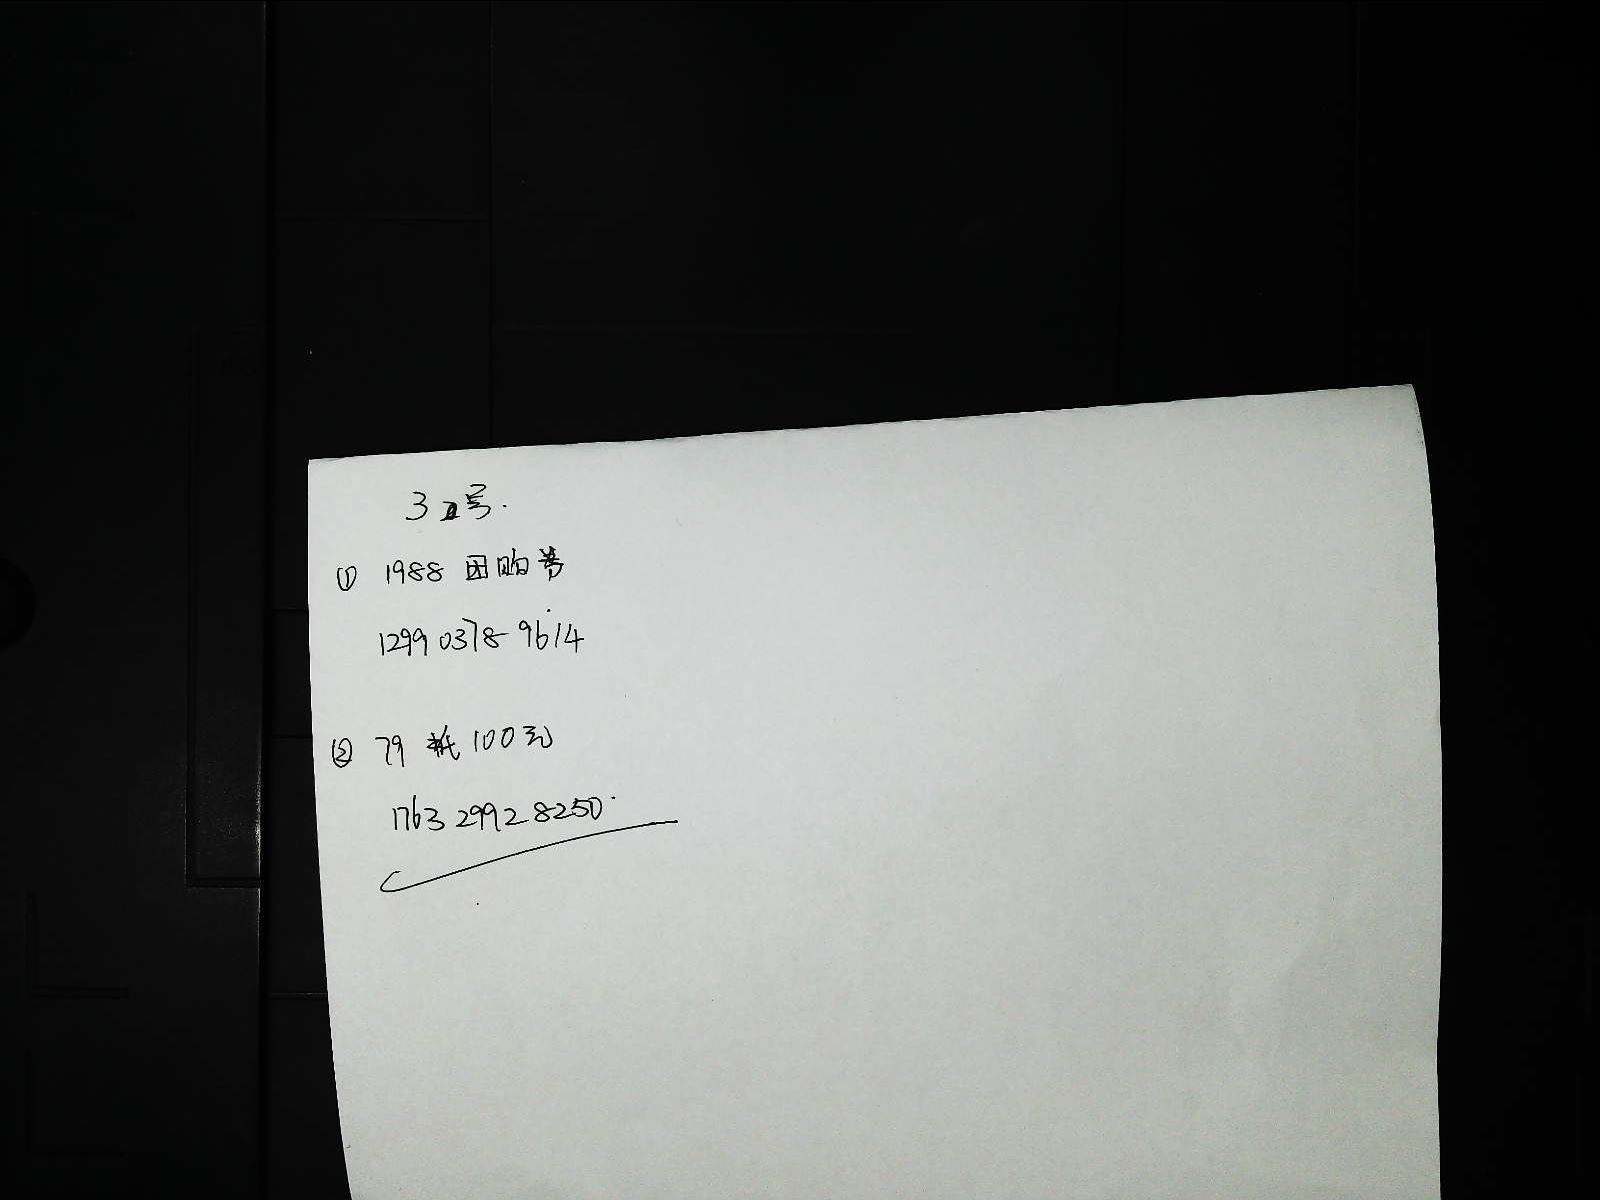 3 号.
① 1988 团购券
1299 0378 9614
② 79 抵 100元
1763 2992 8250